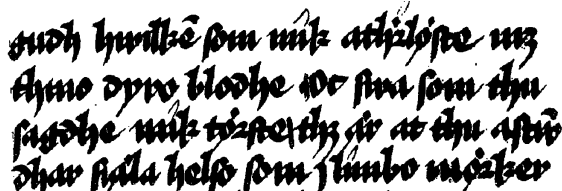 gudh hwilkē som mik athirløste mz
thino dyro blodhe Oc swa som thu
sagdhe mik tørste thz är at thu astūdhar
siäla helso som j limbo mørker